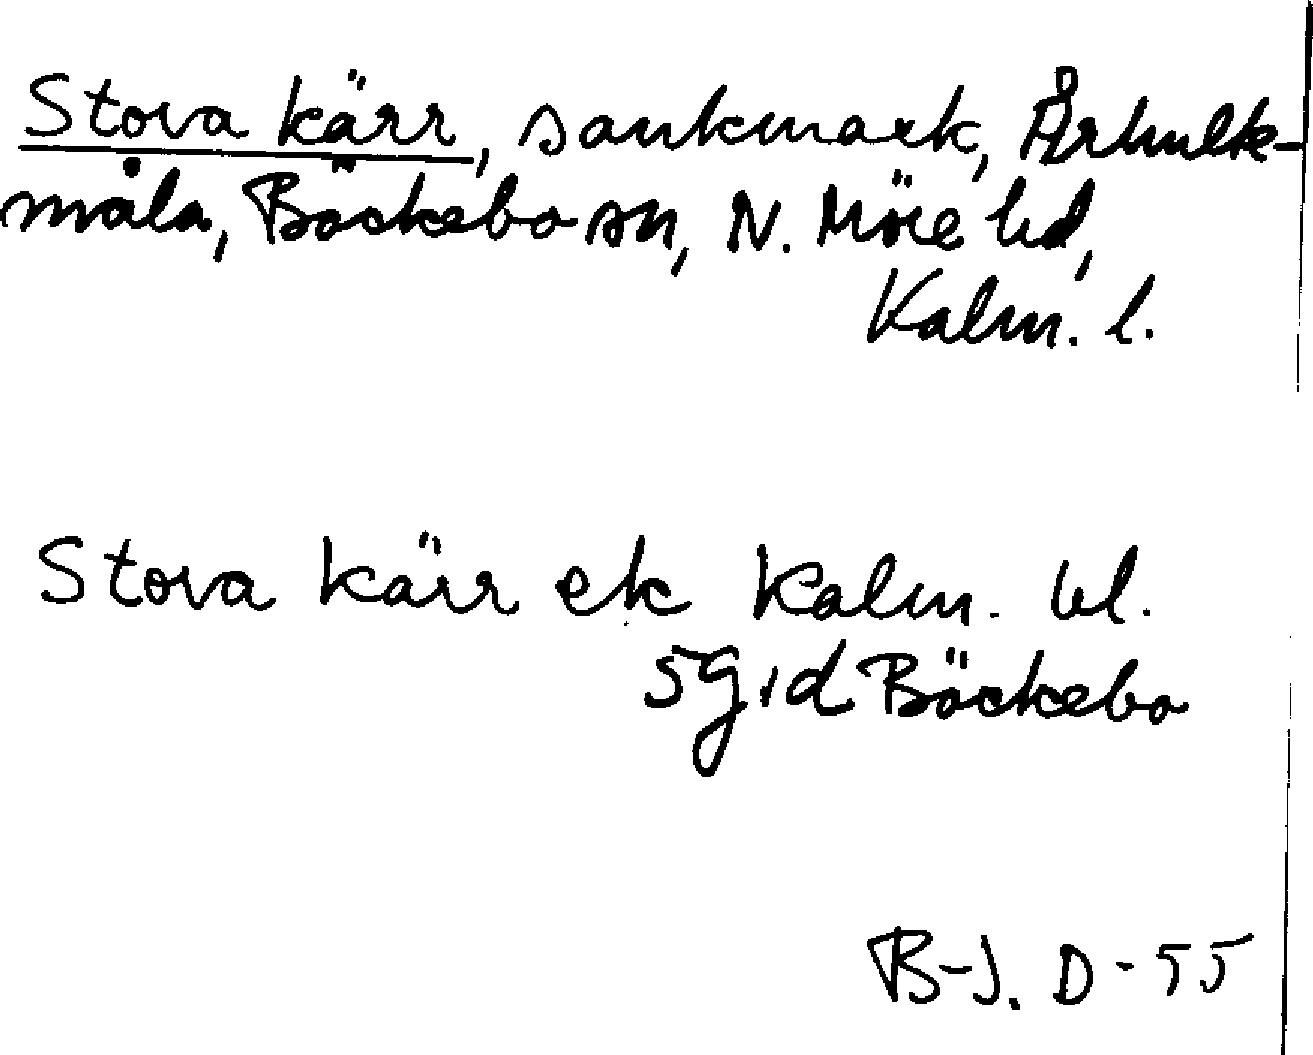 Stova kärr, sankmark, Århult-
måla, Bäckebo sn, N. Möre hd,
Kalm. l.
Stova kärr ek Kalm. bl.
5g, d Bäckebo
B-J. D-55